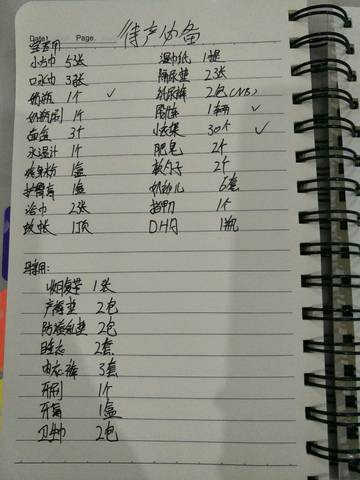 Date: Page. 待产必备
宝宝用
小方巾 5张 湿巾纸 1提
口水巾 3张 隔尿垫 23张
奶瓶 1个 ✓ 纸尿裤 2包(NB)
奶瓶刷 1个 1辆 ✓
脸盆 3个 小衣架 30个 ✓
水温计 1个 肥皂 2个
爽身粉 1盒 软勺子 2个
护臀膏 1盒 6套
浴巾 2张 指甲刀 1个
蚊帐 1顶 DHA 1瓶
母亲用:
收腹带 1张
产褥垫 2包
防溢乳垫 2包
2套
内衣裤 3套
牙刷 1个
牙膏 1盒
卫生巾 2包